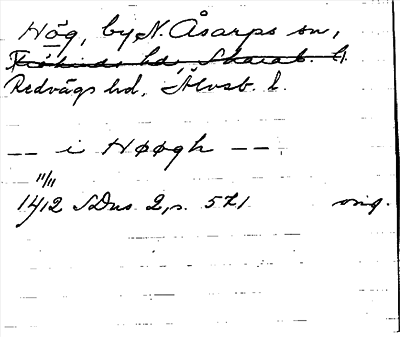 Hög, by N. Åsarps sn,
Frökinds hd, Skarab. l.
Redvägs hd, Älvsb. l.
-- i Høøgh --
11/11
1412 SDns 2, s. 571 orig.